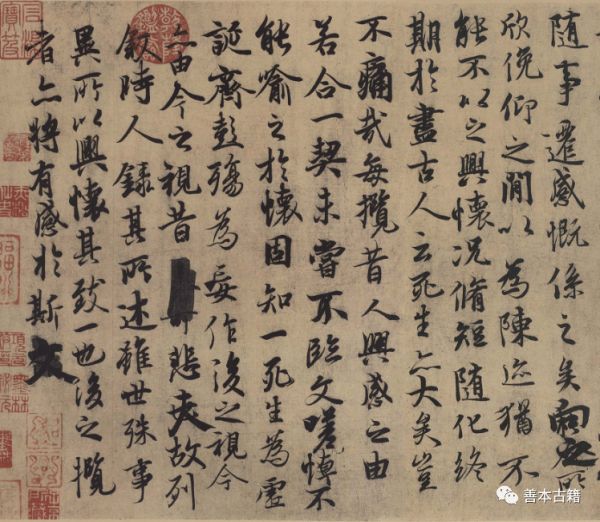 隨事遷感慨係之矣向之所
欣俛仰之閒以為陳迹猶不
能不以之興懷況脩短隨化終
期於盡古人云死生亦大矣豈
不痛哉每攬昔人興感之由
若合一契未嘗不臨文嗟悼不
能喻之於懷固知一死生為虛
誕齊彭殤為妄作後之視今
亦由今之視昔悲夫故列
敘時人錄其所述雖世殊事
異所以興懷其致一也後之攬
者亦將有感於斯文
善本古籍